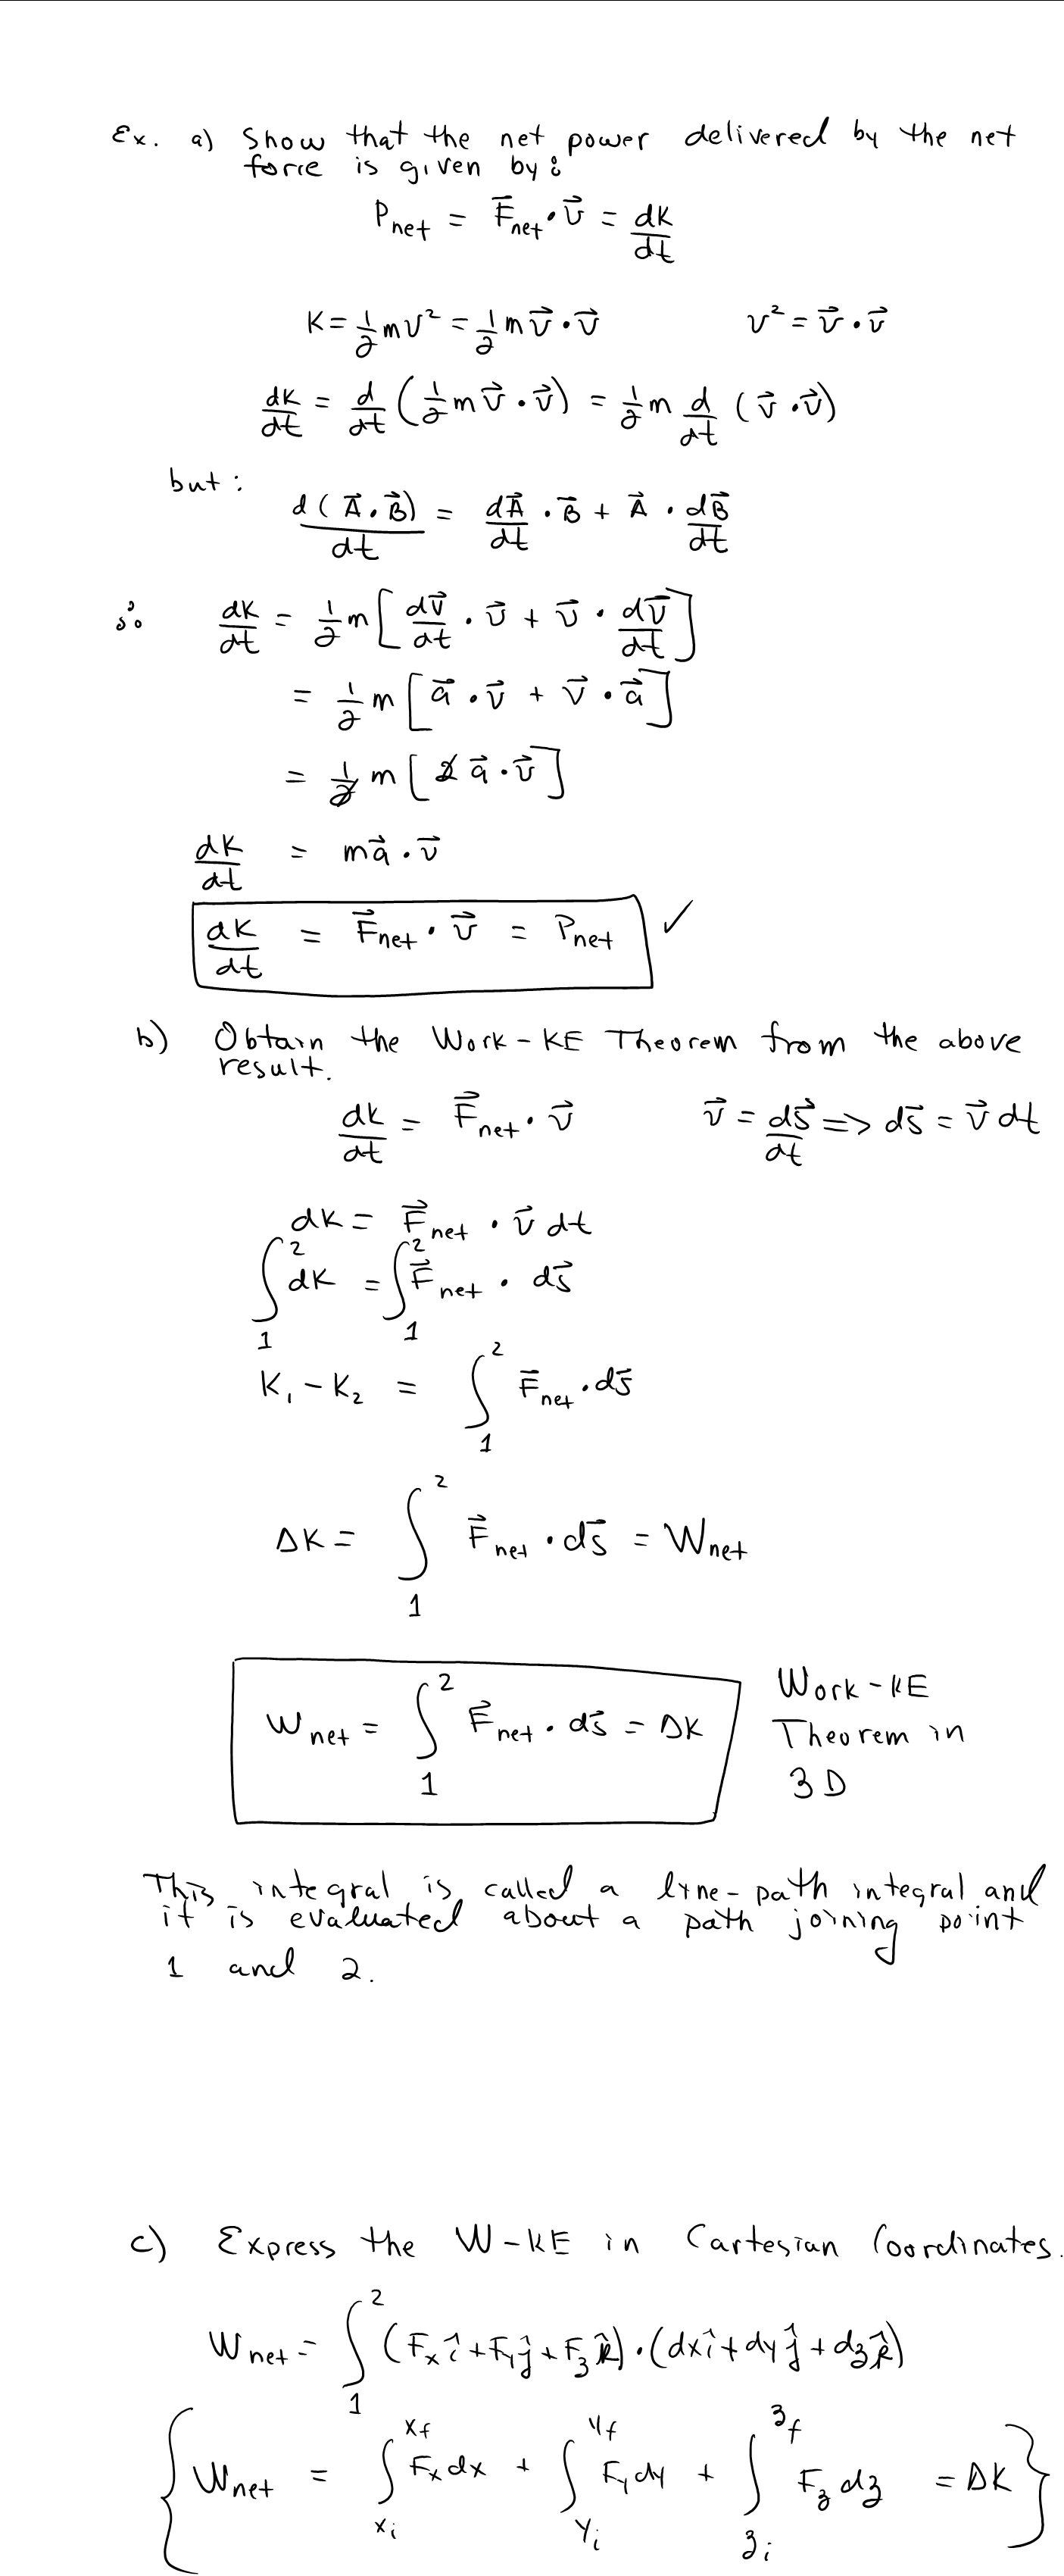 Ex. a) Show that the net power delivered by the net
force is given by:
P_net = F⃗_net · v⃗ = dK/dt
K = 1/2 mv² = 1/2 m v⃗ · v⃗    v² = v⃗ · v⃗
dK/dt = d/dt (1/2 m v⃗ · v⃗) = 1/2 m d/dt (v⃗ · v⃗)
but:
d(A⃗ · B⃗)/dt = dA⃗/dt · B⃗ + A⃗ · dB⃗/dt
∴ dK/dt = 1/2 m [dv⃗/dt · v⃗ + v⃗ · dv⃗/dt]
= 1/2 m [a⃗ · v⃗ + v⃗ · a⃗]
= 1/2 m [2 a⃗ · v⃗]
dK/dt = m a⃗ · v⃗
dK/dt = F⃗_net · v⃗ = P_net ✓
b) Obtain the Work-KE Theorem from the above
result.
dK/dt = F⃗_net · v⃗    v⃗ = ds⃗/dt => ds⃗ = v⃗ dt
dK = F⃗_net · v⃗ dt
∫₁² dK = ∫₁² F⃗_net · ds⃗
K₁ - K₂ = ∫₁² F⃗_net · ds⃗
ΔK = ∫₁² F⃗_net · ds⃗ = W_net
W_net = ∫₁² F⃗_net · ds⃗ = ΔK
Work-KE
Theorem in
3D
This integral is called a line-path integral and
it is evaluated about a path joining point
1 and 2.
c) Express the W-KE in Cartesian Coordinates.
W_net = ∫₁² (F_x î + F_y ĵ + F_z k̂) · (dx î + dy ĵ + dz k̂)
{W_net = ∫_{x_i}^{x_f} F_x dx + ∫_{y_i}^{y_f} F_y dy + ∫_{z_i}^{z_f} F_z dz = ΔK}